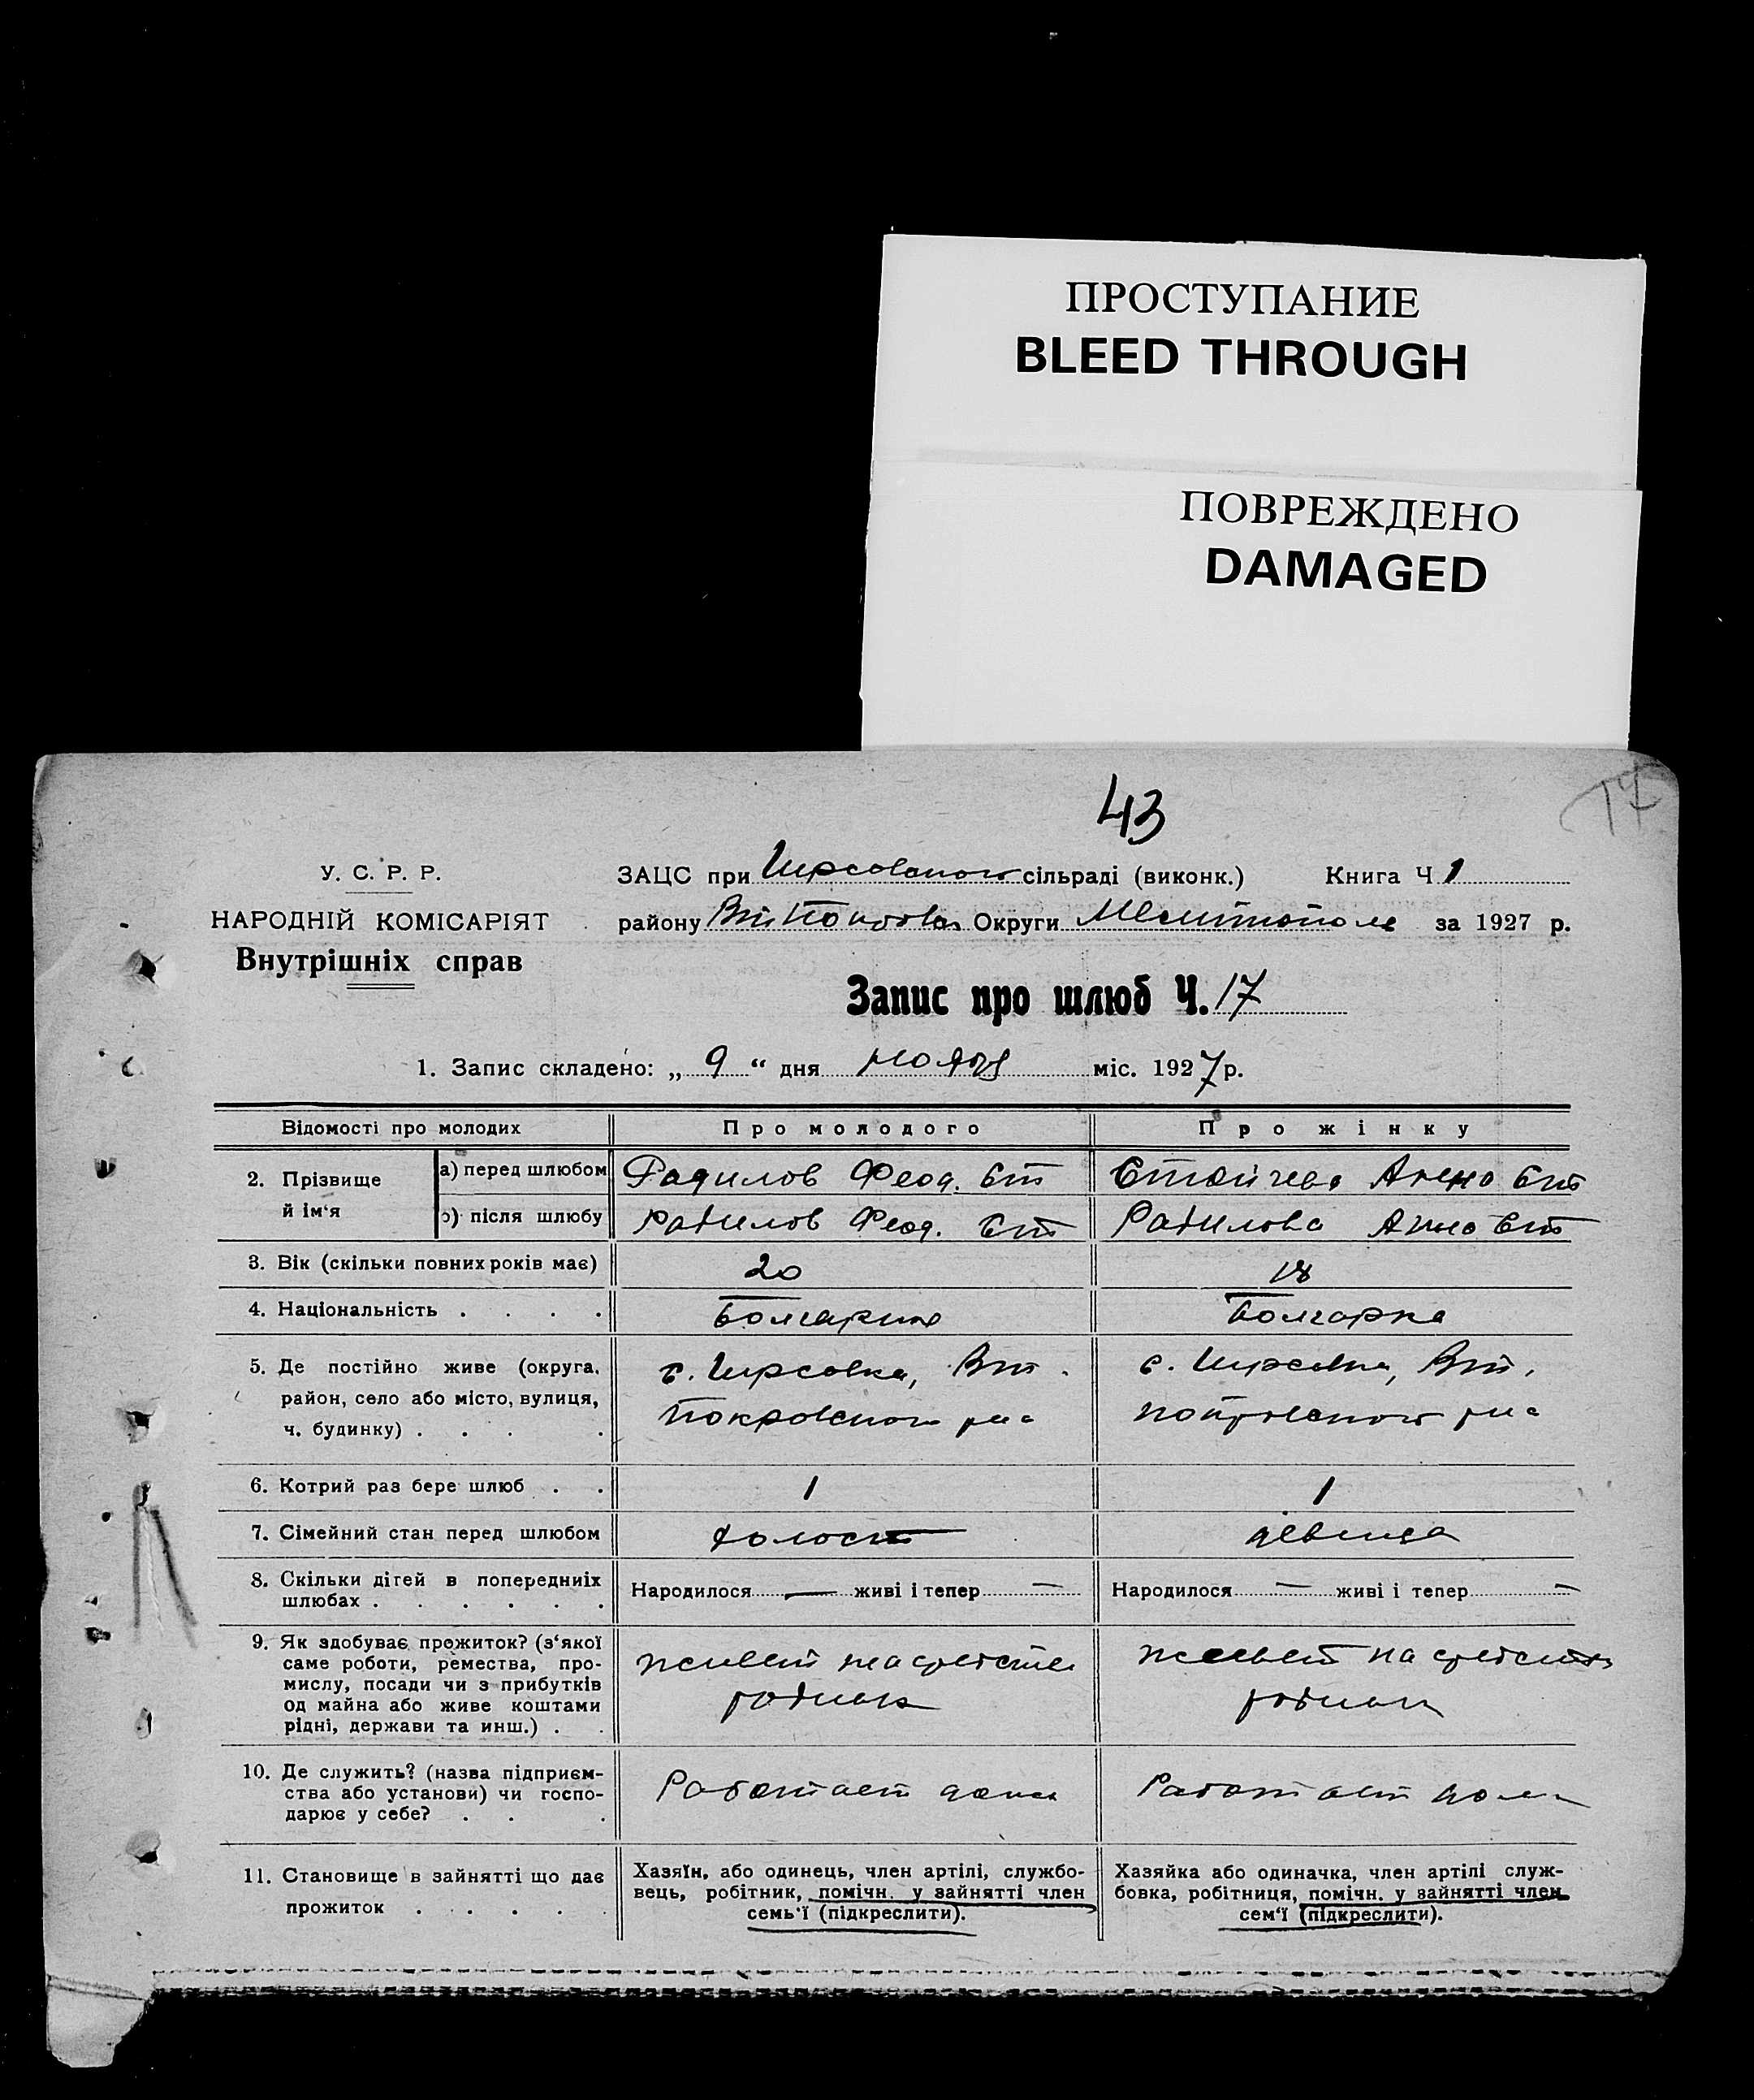 ПРОСТУПАНИЕ
BLEED THROUGH
ПОВРЕЖДЕНО
DAMAGED
43
17
У. С. Р. Р.
НАРОДНІЙ КОМІСАРІЯТ
Внутрішніх справ
ЗАЦС при сільраді (виконк.) Книга Ч 1
району Округи Мелитополь за 1927 р.
Запис про шлюб Ч. 17
1. Запис складено: „ 9 “ дня ноября міс. 1927 р.
Відомості про молодих Про молодого Про жінку
2. Прізвище й ім‘я
а) перед шлюбом Радилов Феод. Ст Стойчева Анна Ст
б) після шлюбу Радилов Феод. Ст Радилова Анна Ст
3. Вік (скільки повних років має) 20 18
4. Національність . . . . Болгарин Болгарка
5. Де постійно живе (округа, район, село або місто, вулиця, ч. будинку) . . . .
с. Вт.
Покровского р-на
с. Вт.
Покровского р-на
6. Котрий раз бере шлюб . . 1 1
7. Сімейний стан перед шлюбом холост девица
8. Скільки дітей в попередніх шлюбах . . . . . .
Народилося — живі і тепер —
Народилося — живі і тепер —
9. Як здобуває прожиток? (з‘якої
саме роботи, ремества, про-
мислу, посади чи з прибутків
од майна або живе коштами
рідні, держави та инш.) . .
живет на средства
родных
живет на средства
родных
10. Де служить? (назва підприєм-
ства або установи) чи госпо-
дарює у себе? . . .
Работает дома
Работает дома
11. Становище в зайнятті що дає
прожиток . . . . .
Хазяїн, або одинець, член артілі, службо-
вець, робітник, помічн. у зайнятті член
семь‘ї (підкреслити).
Хазяйка або одиначка, член артілі служ-
бовка, робітниця, помічн. у зайнятті член
сем‘ї (підкреслити).